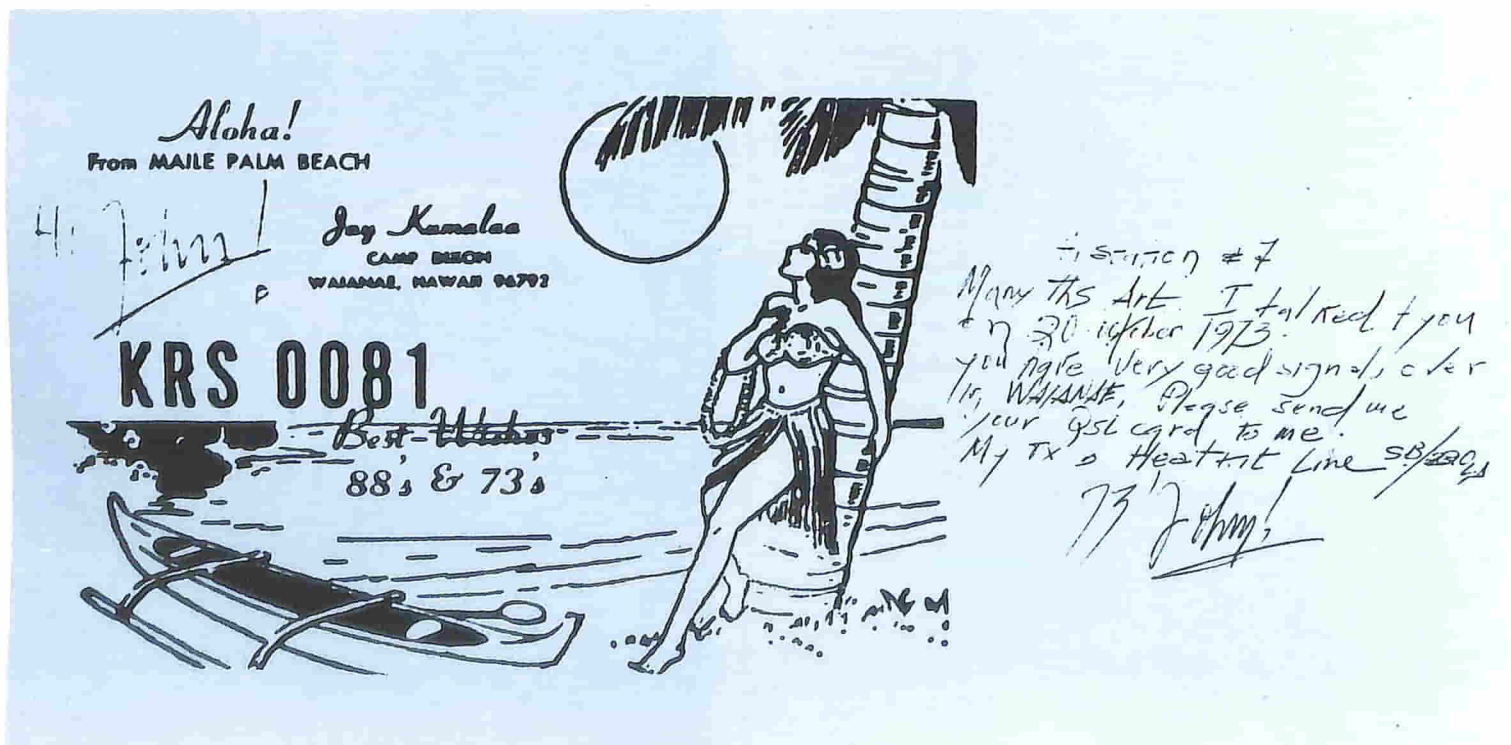 Aloha!
From MAILE PALM BEACH
Hi John!
Jay Kamalaa
CAMP DIXON
WAIANAE, HAWAII 96792
KRS 0081
Best Wishes
88's & 73's
#7
Many Ths Art. I talked t you
on 30 1973.
you very good signals over
WAIANAE, Please send me
your QSL card to me.
My TX Line SB/
73 John!